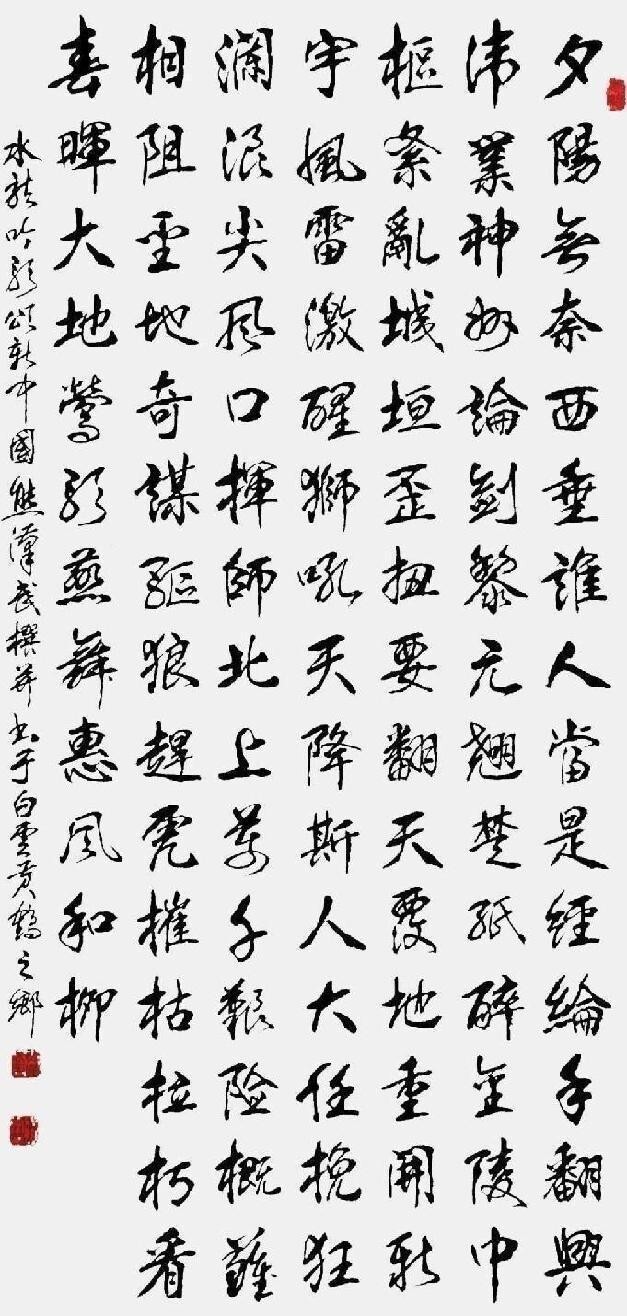 夕陽無奈西垂誰人當是經綸手翻興
偉業神州論劍黎元翹楚紙醉金陵中
樞紊亂城垣歪扭要翻天覆地重開新
宇風雷激醒獅吼天降斯人大任挽狂
瀾浪尖風口揮師北上萬千艱險概難
相阻聖地奇謀驅狼趕虎摧枯拉朽看
春暉大地鶯歌燕舞惠風和柳
水龍吟歌頌新中國熊漢武撰并書于白雲黃鶴之鄉